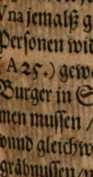 Vna jemalß g
Personen wid
A 25.) gew
Burger in S
men mussen /
vnnd gleichw
gräbnussen /